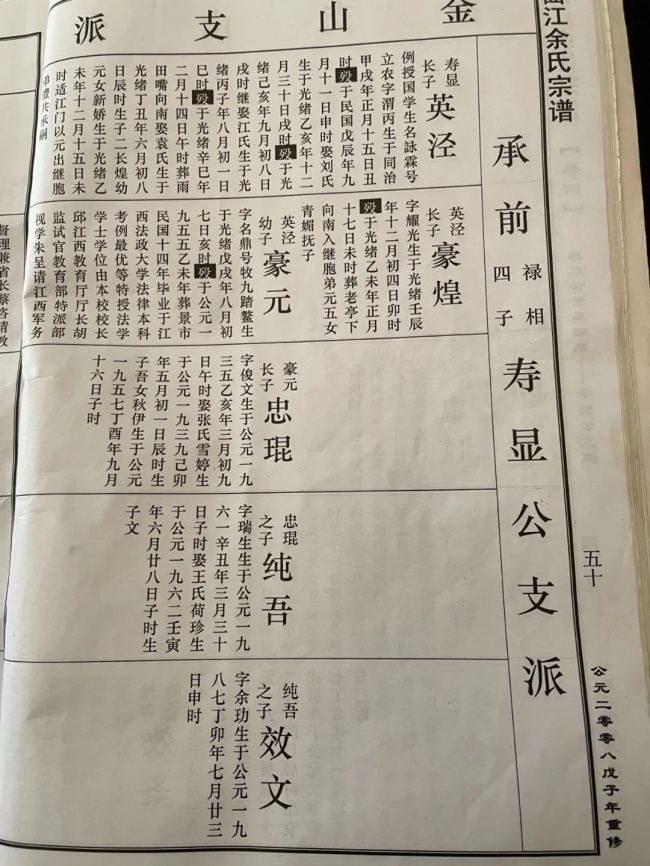 金山支派
曲江余氏宗谱
五十
公元二零零八戊子年重修
承前
禄相
四子
寿显公支派
寿显
长子
英泾
例授国学生名詠霖号
立农字渭丙生于同治
甲戌年正月十五日丑
时殁于民国戊辰年九
月十一日申时娶刘氏
生于光绪乙亥年十二
月三十日戌时殁于光
绪己亥年九月初八日
戌时继娶江氏生于光
绪丙子年八月初一日
巳时殁于光绪辛巳年
二月十四日午时葬雨
田嘴向南娶袁氏生于
光绪丁丑年六月初八
日辰时生子二长煌幼
元女新娇生于光绪乙
未年十二月十五日未
时适江门以元出继胞
弟豊共承嗣
英泾
长子
豪煌
字耀光生于光绪壬辰
年十二月初四日卯时
殁于光绪乙未年正月
十七日未时葬老亭下
向南入继胞弟元五女
青媚抚子
英泾
幼子
豪元
字名鼎号牧九踏鳌生
于光绪戊戌年八月初
七日亥时殁于公元一
九五五乙未年葬景市
民国十四年毕业于江
西法政大学法律本科
考例最优等特授法学
学士学位由本校校长
邱江西教育厅厅长胡
监试官教育部特派部
视学朱呈请江西军务
督理兼省长蔡咨请教
豪元
长子
忠琨
字俊文生于公元一九
三五乙亥年三月初九
日午时娶张氏雪婷生
于公元一九三九己卯
年五月初一日辰时生
子吾女秋伊生于公元
一九五七丁酉年九月
十六日子时
忠琨
之子
纯吾
字瑞生生于公元一九
六一辛丑年三月三十
日子时娶王氏荷珍生
于公元一九六二壬寅
年六月廿八日子时生
子文
纯吾
之子
效文
字余玏生于公元一九
八七丁卯年七月廿三
日申时